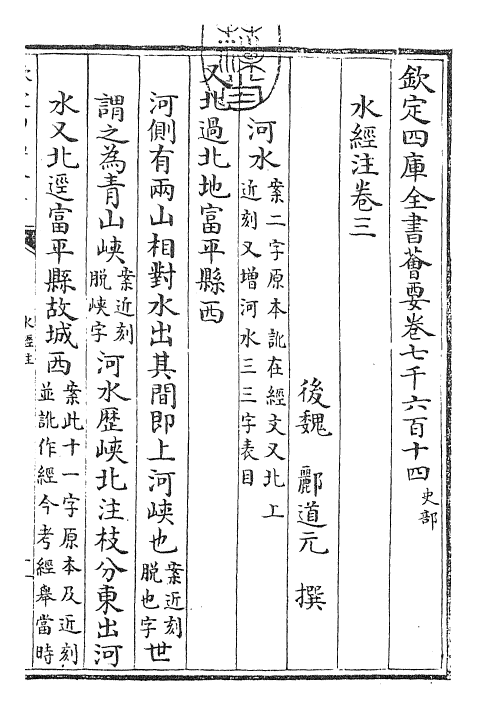 欽定四庫全書薈要卷七千六百十四 史部
水經注卷三
後魏 酈道元 撰
河水 案二字原本訛在經文又北上近刻又增河水三三字表目
又北過北地富平縣西
河側有兩山相對水出其間即上河峽也 案近刻脫也字 世
謂之為青山峽 案近刻脫峽字 河水歷峽北注枝分東出河
水又北逕富平縣故城西 案此十一字原本及近刻並訛作經今考經舉當時
水經注